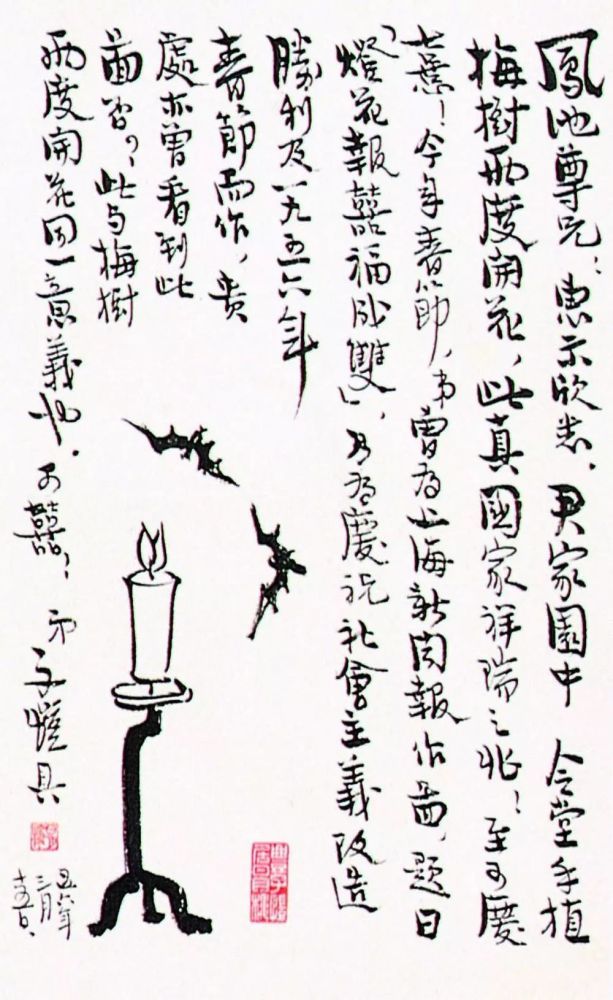 鳳池尊兄：惠示欣悉，君家園中　令堂手植
梅樹兩度開花，此真國家祥瑞之兆！至可慶
七慰！今年春節，弟曾为上海新聞報作畫，題曰
「燈花報囍福成雙」，乃为慶祝社會主義改造
勝利及一九五六年
春節而作，貴
處亦曾看到此
畫否？此与梅樹
兩度開花同一意義也。可囍！ 弟子愷具
五六年
三月